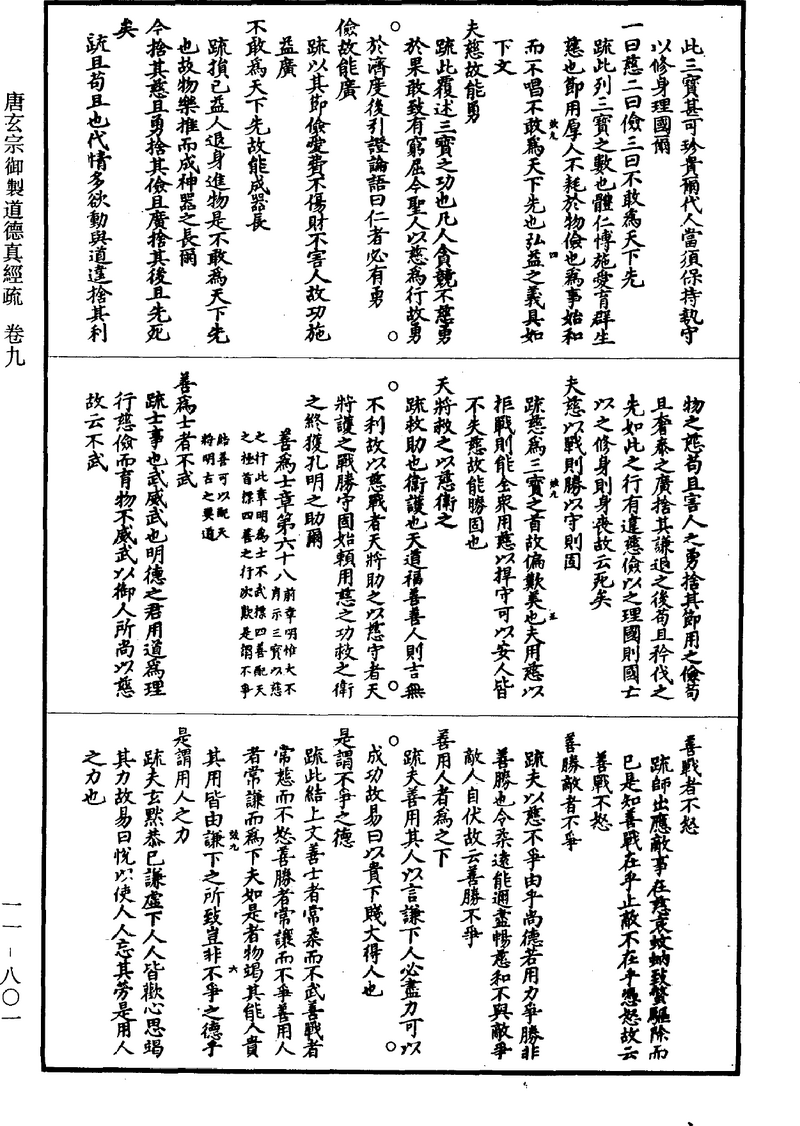 唐玄宗御製道德真經疏　卷九
一一－八〇一
此三寶甚可珍貴爾代人當須保持執守
以修身理國爾
一曰慈二曰儉三曰不敢為天下先
疏此列三寶之數也體仁博施愛育群生
慈也節用厚人不耗於物儉也為事始和
而不唱不敢為天下先也弘益之義具如
下文
夫慈故能勇
疏此覆述三寶之功也凡人貪競不慈勇
於果敢致有窮屈今聖人以慈為行故勇
於濟度後引證論語曰仁者必有勇
儉故能廣
疏以其節儉愛費不傷財不害人故功施
益廣
不敢為天下先故能成器長
疏損己益人退身進物是不敢為天下先
也故物樂推而成神器之長爾
今捨其慈且勇捨其儉且廣捨其後且先死
矣
疏且苟且也代情多欲動與道違捨其利
物之慈苟且害人之勇捨其節用之儉苟
且奢泰之廣捨其謙退之後苟且矜伐之
先如此之行有違慈儉以之理國則國亡
以之修身則身喪故云死矣
夫慈以戰則勝以守則固
疏慈為三寶之首故偏歎美也夫用慈以
拒戰則能全衆用慈以捍守可以安人皆
不失慈故能勝固也
天將救之以慈衛之
疏救助也衛護也天道福善善人則吉無
不利故以慈戰者天將助之以慈守者天
將護之戰勝守固始賴用慈之功救之衛
之終獲孔明之助爾
善為士章第六十八
前章明惟大不
肖示三寶以慈
之行此章明為士不武標四善配天
之極首標四善之行次歎是謂不爭
結善可以配天
將明古之奧道
善為士者不武
疏士事也武威武也明德之君用道為理
行慈儉而育物不威武以御人所尚以慈
故云不武
善戰者不怒
疏師出應敵事在慈哀蚊蚋致螫驅除而
已是知善戰在乎止敵不在乎憑怒故云
善戰不怒
善勝敵者不爭
疏夫以慈不爭由乎尚德若用力爭勝非
善勝也今柔遠能邇盡暢慈和不與敵爭
敵人自伏故云善勝不爭
善用人者為之下
疏夫善用其人以言謙下人必盡力可以
成功故易曰以貴下賤大得人也
是謂不爭之德
疏此結上文善士者常柔而不武善戰者
常慈而不怒善勝者常讓而不爭善用人
者常謙而為下夫如是者物竭其能人貴
其用皆由謙下之所致豈非不爭之德乎
是謂用人之力
疏夫玄默恭己謙虛下人人皆歡心思竭
其力故易曰悅以使人人忘其勞是用人
之力也